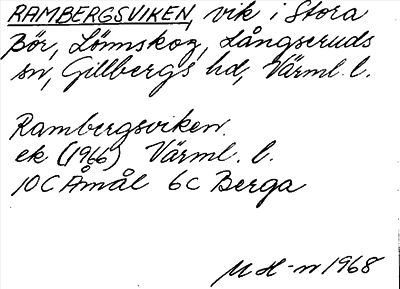 RAMBERGSVIKEN, vik i Stora
Bör, Lönnskog, Långseruds
sn, Gillbergs hd, Värml. l.
Rambergsviken.
ek (1966) Värml. l.
10C Åmål 6c Berga
M H-n 1968